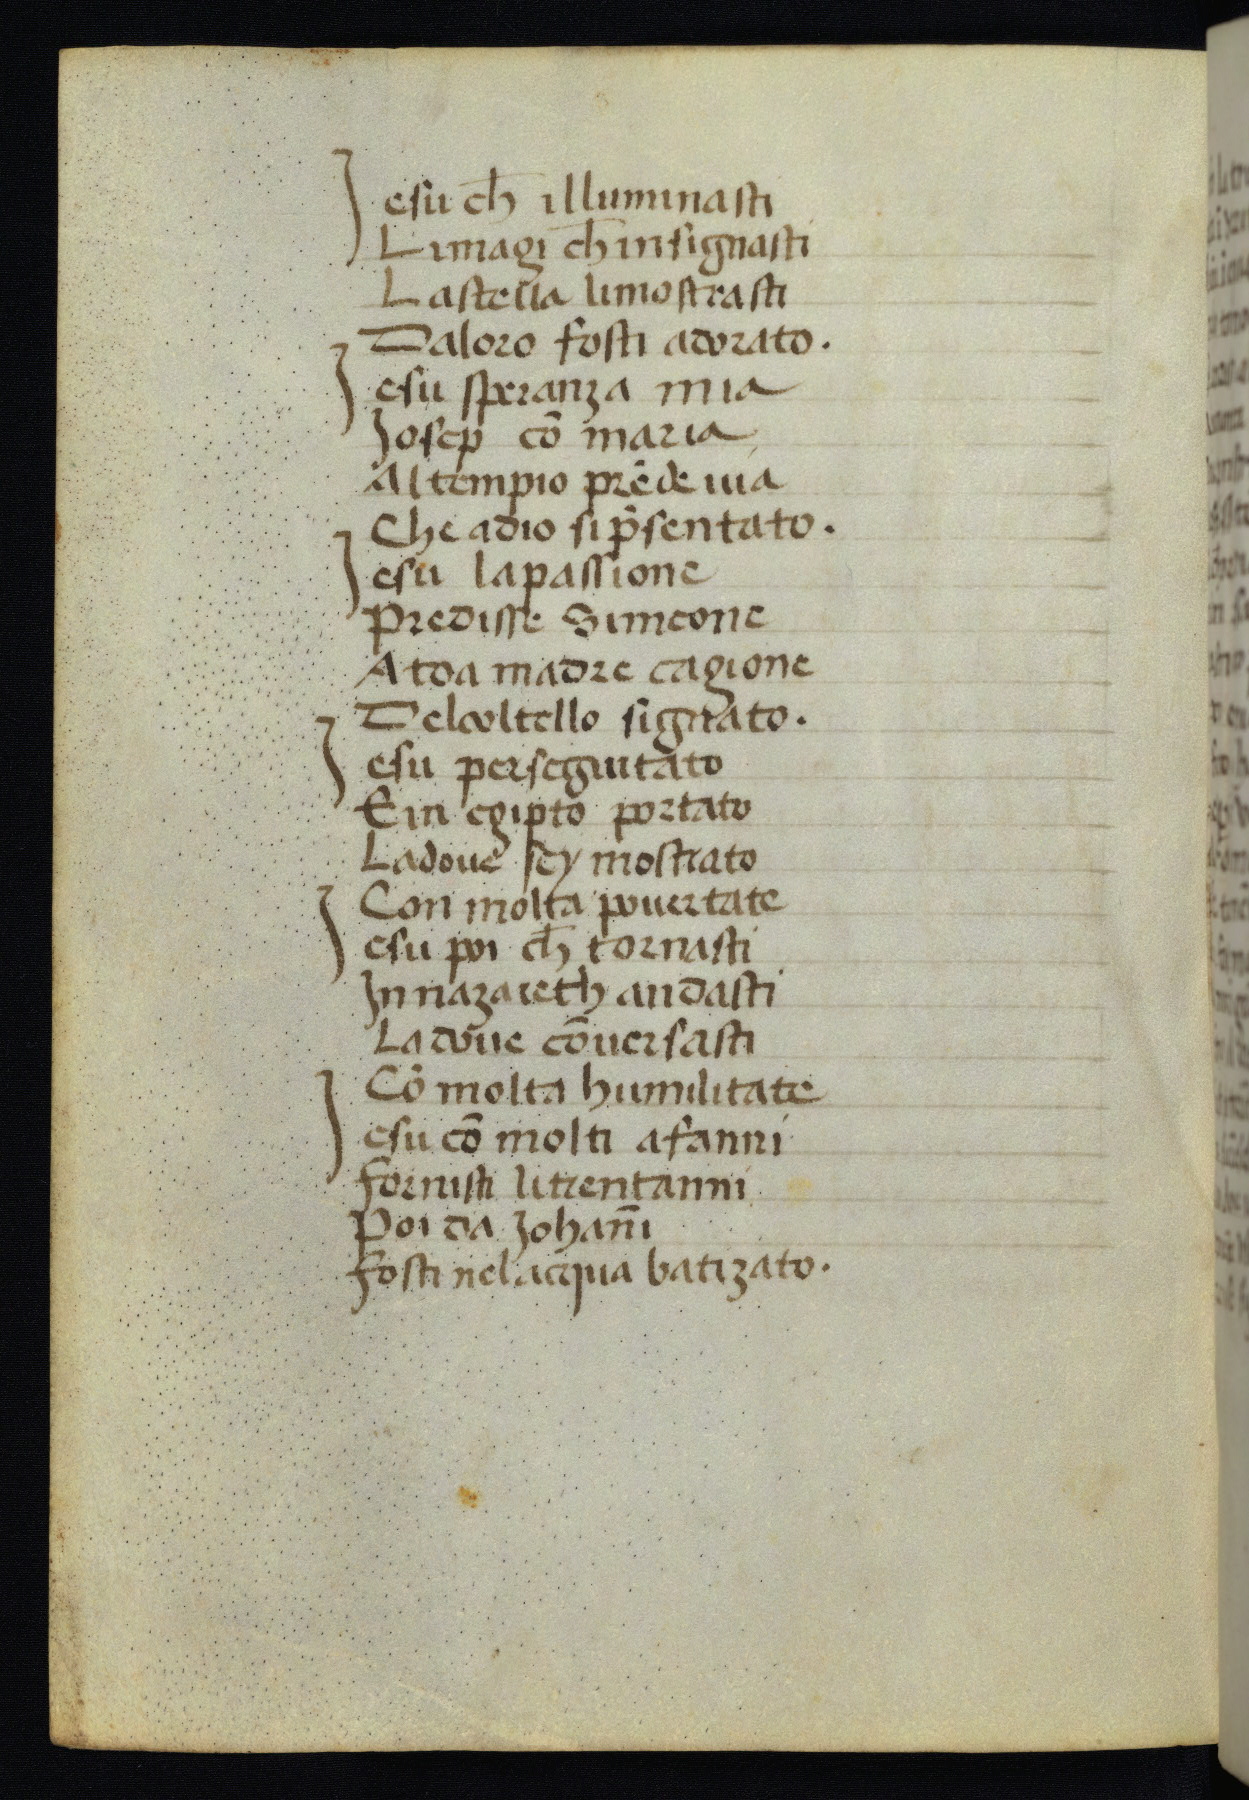 Jesu ch̄ illuminasti
Limagi ch̄ insignasti
Lastella limostrasti
Daloro fosti adorato.
Jesu speranza mia
Josep cō maria
Altempio prēde uia
Che adio si p̄sentato.
Jesu lapassione
Predisse Simeone
Atoa madre cagione
Delcoltello signato.
Jesu perseguitato
Ein egipto portato
Ladoue sey mostrato
Con molta pouertate
Jesu poi ch̄ tornasti
Innazareth andasti
Ladoue cōuersasti
Cō molta humilitate
Jesu cō molti afanni
fornisti litrentanni
Poi da Johan̄i
fosti nelacqua batizato.